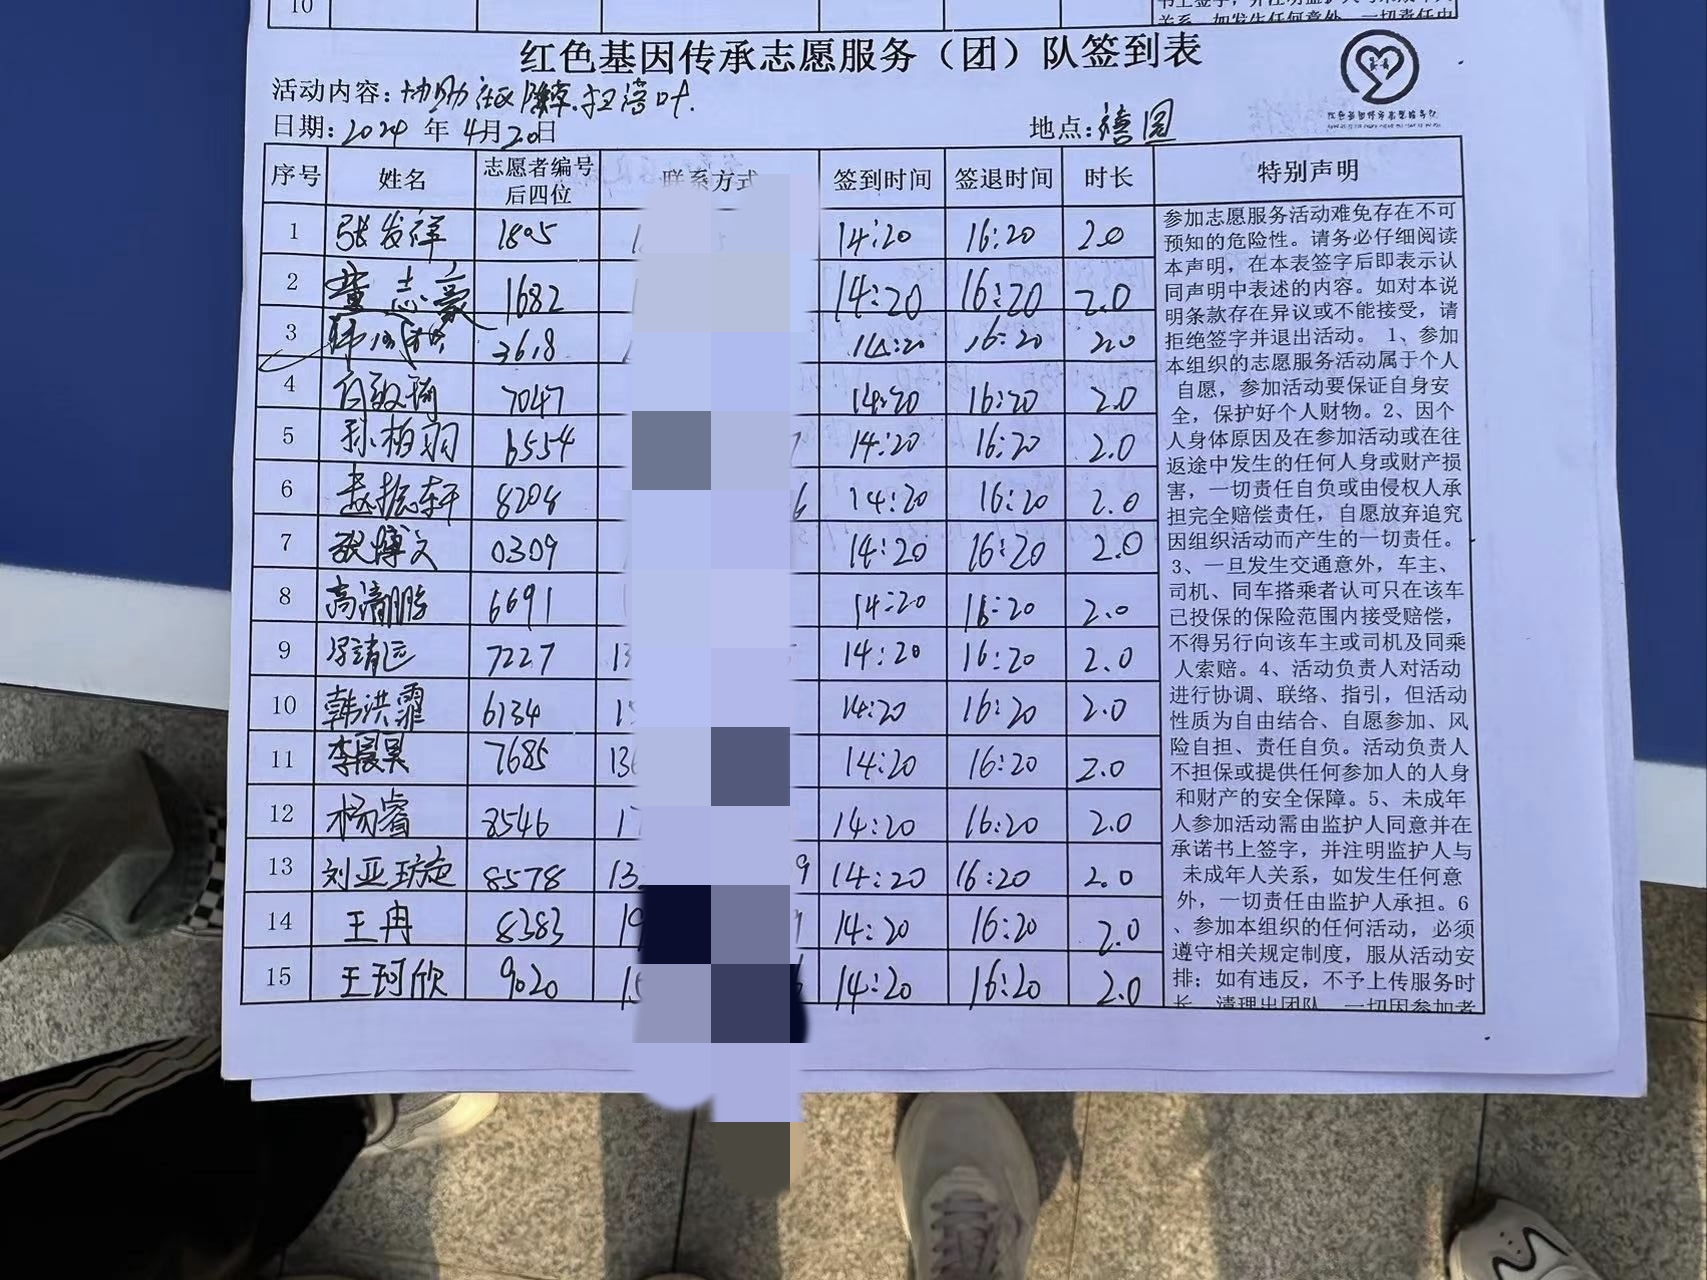 10
红色基因传承志愿服务（团）队签到表
活动内容:协助社区除草.扫落叶.
日期:2024年4月20日 地点:禧园
序号 姓名 志愿者编号后四位 联系方式 签到时间 签退时间 时长 特别声明
1 张发祥 1805 1 14:20 16:20 2.0
2 董志豪 1682 14:20 16:20 2.0
3 3618 14:20 16:20 2.0
4 白毅琦 7047 14:20 16:20 2.0
5 孙柏羽 6554 14:20 16:20 2.0
6 赵振轩 8208 6 14:20 16:20 2.0
7 张博文 0309 14:20 16:20 2.0
8 高清鹏 6691 14:20 16:20 2.0
9 靖远 7227 13 14:20 16:20 2.0
10 韩洪霏 6134 15 14:20 16:20 2.0
11 李晨昊 7685 136 14:20 16:20 2.0
12 杨睿 8546 17 14:20 16:20 2.0
13 刘亚玏旋 8578 13 9 14:20 16:20 2.0
14 王冉 8383 19 14:20 16:20 2.0
15 王珂欣 9020 15 14:20 16:20 2.0
参加志愿服务活动难免存在不可
预知的危险性。请务必仔细阅读
本声明，在本表签字后即表示认
同声明中表述的内容。如对本说
明条款存在异议或不能接受，请
拒绝签字并退出活动。 1、参加
本组织的志愿服务活动属于个人
自愿，参加活动要保证自身安
全，保护好个人财物。2、因个
人身体原因及在参加活动或在往
返途中发生的任何人身或财产损
害，一切责任自负或由侵权人承
担完全赔偿责任，自愿放弃追究
因组织活动而产生的一切责任。
3、一旦发生交通意外，车主、
司机、同车搭乘者认可只在该车
己投保的保险范围内接受赔偿，
不得另行向该车主或司机及同乘
人索赔。4、活动负责人对活动
进行协调、联络、指引，但活动
性质为自由结合、自愿参加、风
险自担、责任自负。活动负责人
不担保或提供任何参加人的人身
和财产的安全保障。5、未成年
人参加活动需由监护人同意并在
承诺书上签字，并注明监护人与
未成年人关系，如发生任何意
外，一切责任由监护人承担。6
、参加本组织的任何活动，必须
遵守相关规定制度，服从活动安
排；如有违反，不予上传服务时
长，清理出团队，一切因参加者